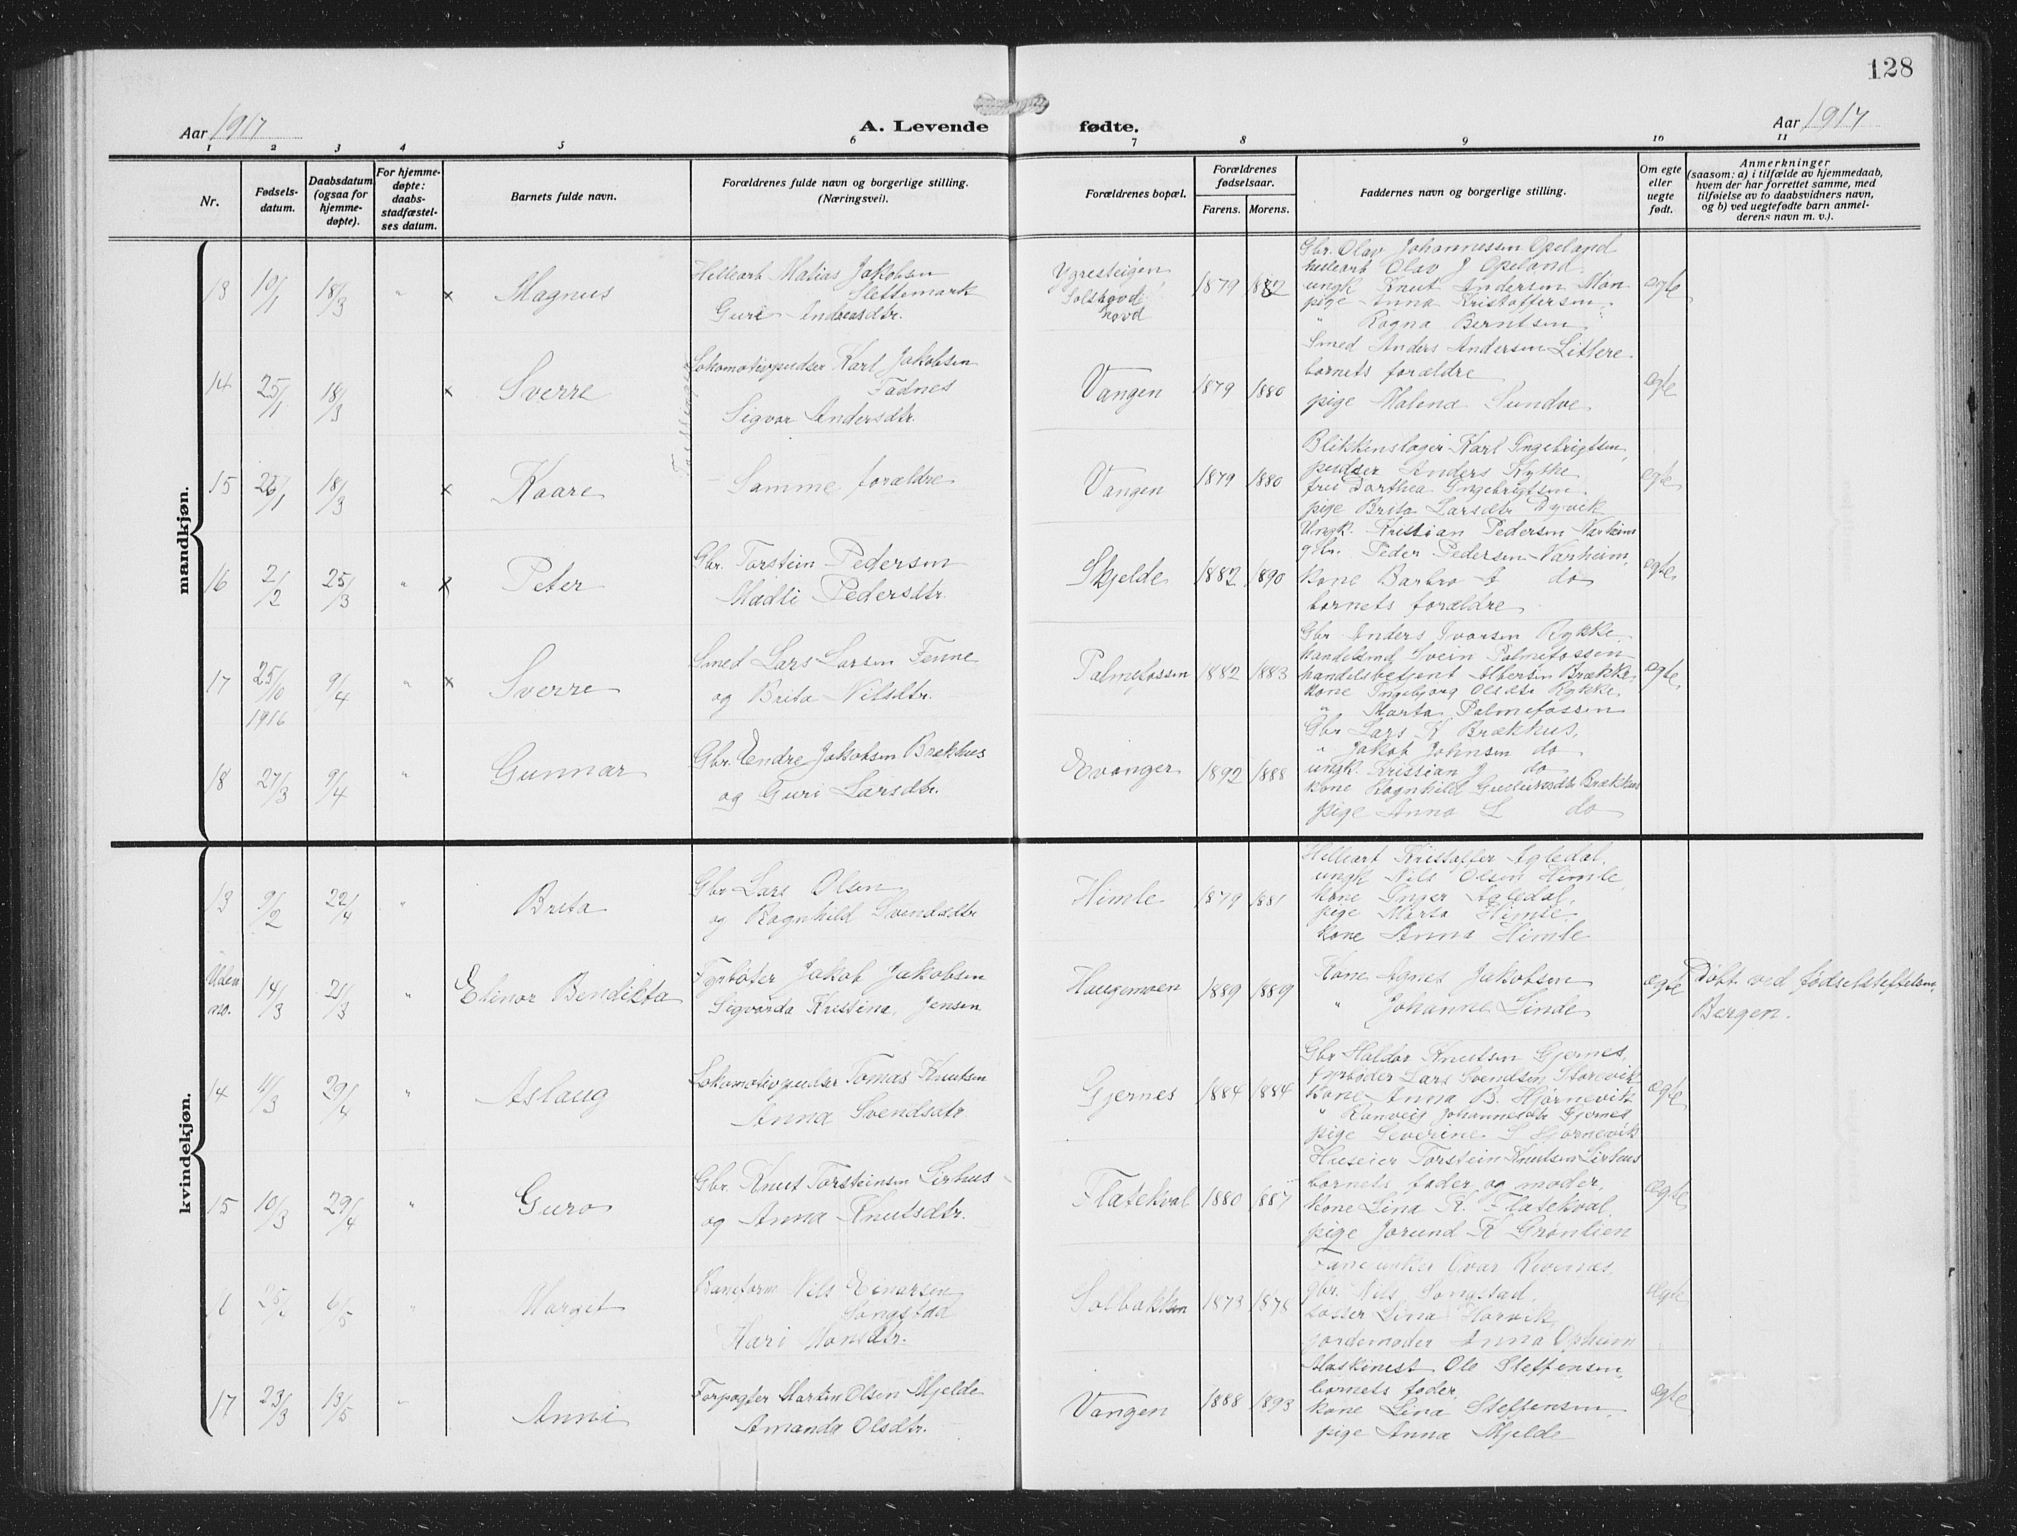 128
Aar 1917
A. Levende fødte.
Aar 1917
1 2 3 4 5 6 7 8 9 10 11
Nr.
Fødsels-
datum.
Daabsdatum
(ogsaa for
hjemme-
døpte).
For hjemme-
døpte:
daabs-
stadfæstel-
ses datum.
Barnets fulde navn.
Forældrenes fulde navn og borgerlige stilling.
(Næringsvei).
Forældrenes bopæl.
Forældrenes
fødselsaar.
Farens. Morens.
Faddernes navn og borgerlige stilling.
Om egte
eller
uegte
født.
Anmerkninger
(saasom: a) i tilfælde av hjemmedaab,
hvem der har forrettet samme, med
tilføielse av to daabsvidners navn,
og b) ved uegtefødte barn anmel-
derens navn m. v.).
mandkjøn.
13 10/1 18/3 " x Magnus
Helleart Matias Jakobsen
Slettemark
Guri Andreasdtr.
1879 1882
Gbr. Olav Johannessen Opeland
Helleart Olav J Opeland
ungk Knut Andersen Møn
pige Anna Kristoffersen
" Ragna Berntsen
egte
14 25/1 18/3 x Sverre
Lokomotivpudser Karl Jakobsen
Fadnes
Sigvor Andersdtr.
Vangen 1879 1880
Smed Anders Andersen Litlere
barnets forældre
pige Malena Sundve
egte
15 25/1 18/3 x Kaare
Samme forældre
Vangen 1879 1880
Blikkenslager Karl Ingebrigtsen,
pudser Anders Kythe
fru Dorthea Ingebrigtsen
pige Brita Larsdtr Dyvik
egte
16 2/2 25/3 " x Peter
Gbr. Torstein Pedersen
Madli Pedersdtr.
Skjelde 1882 1890
Ungk. Kristian Pedersen Varheim
gbr. Peder Pedersen Varheim,
kone Barbro do
barnets forældre
egte
17 25/10 1916 9/4 " x Sverre
Smed Lars Larsen Fenne
og Brita Nilsdtr.
Palmefossen 1882 1883
Gbr Anders Ivarsen Rykke
handelsmd Svein Palmefossen
handelsbetjent Albertin Brække
kone Ingebjørg Olsdtr Rykke
" Marta Palmefossen
egte
18 27/3 9/4 " Gunnar
Gbr. Endre Jakobsen Brækhus
og Guri Larsdtr.
Evanger 1892 1888
Gbr Lars K Brækhus,
" Jakob Johnsen do
ungk. Kristian J do
kone Ragnhild Gulleiksdtr Brækhus
pige Anna L do
kvindekjøn.
13 9/2 22/4 " Brita
Gbr Lars Olsen
og Ragnhild Svendsdtr
Himle 1879 1881
Helleart Kristoffer Agledal,
ungk Nils Olsen Himle,
kone Inger Agledal,
pige Marta Himle
kone Anna Himle
Uden no. 14/3 21/3 " Elinor Bendikta
Fyrbøter Jakob Jakobsen
Sigvarda Kristina Jensen
Haugamoen 1889 1889
Kone Agnes Jakobsen
" Johanne Linde
egte
Døbt ved fødselsstiftelsen
Bergen.
14 11/3 29/4 " Aslaug
Lokomotivpudser Tomas Knutsen
Anna Svendsdtr.
Gjernes 1884 1884
Gbr Haldor Knutsen Gjernes,
fyrbøder Lars Svendsen Storevik
kone Anna B. Hjørnevik
" Ranveig Johannesdtr Gjernes
pige Severine S Hjørnevik
egte
15 10/3 29/4 " Guro
Gbr. Knut Torsteinsen Lirhus
og Anna Knutsdtr.
Flatekval 1880 1887
Huseier Torstein Knutsen Lirhus
barnets fader og moder,
kone Lina K. Flatekval,
pige Jorund K Grønlien
egte
6/5 Marget
Baneform Nils Einarsen
Songstad
Kari Monsdtr.
Solbakken 1873 1878
gbr. Nils Songstad,
Lina Horvik
jordemoder Anna Opheim
egte
17 23/3 13/5 " Anni
Forpagter Martin Olsen Mjelde
Amanda Olsdtr.
Vangen 1888 1893
Maskinist Ole Steffensen,
barnets fader,
kone Lina Steffensen,
pige Anna Mjelde
egte